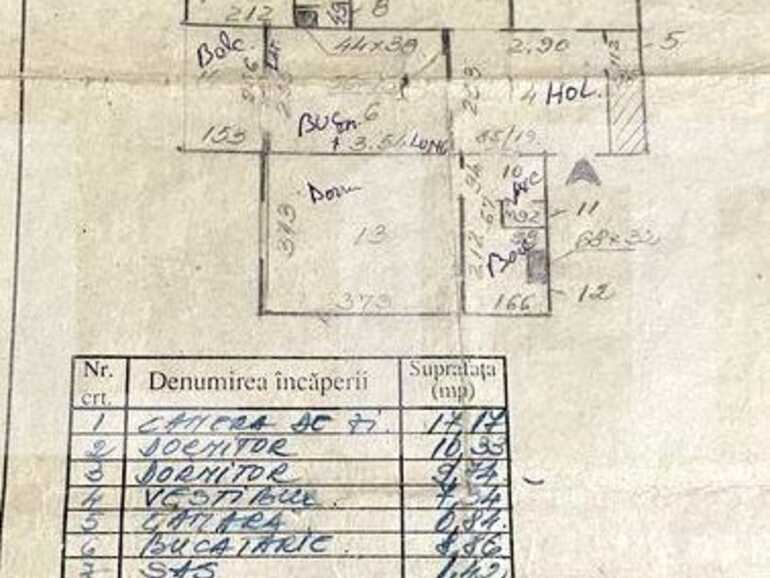 212
8
Balc.
44x38
2.90
5
4 HOL.
BUCn. 6
153
3.5
LUNG
85/19
Dorm
10
373
13
11
212
68x32
373
166
12
Nr. crt.
Denumirea încăperii
Suprafaţa (mp)
1 CAMERA DE ZI. 17,17
2 DORMITOR 10,33
3 DORMITOR 9,74
4 VESTIBUL 7,54
5 CAMARA 0,84
6 BUCATARIE 8,86
7 SAS 1,42